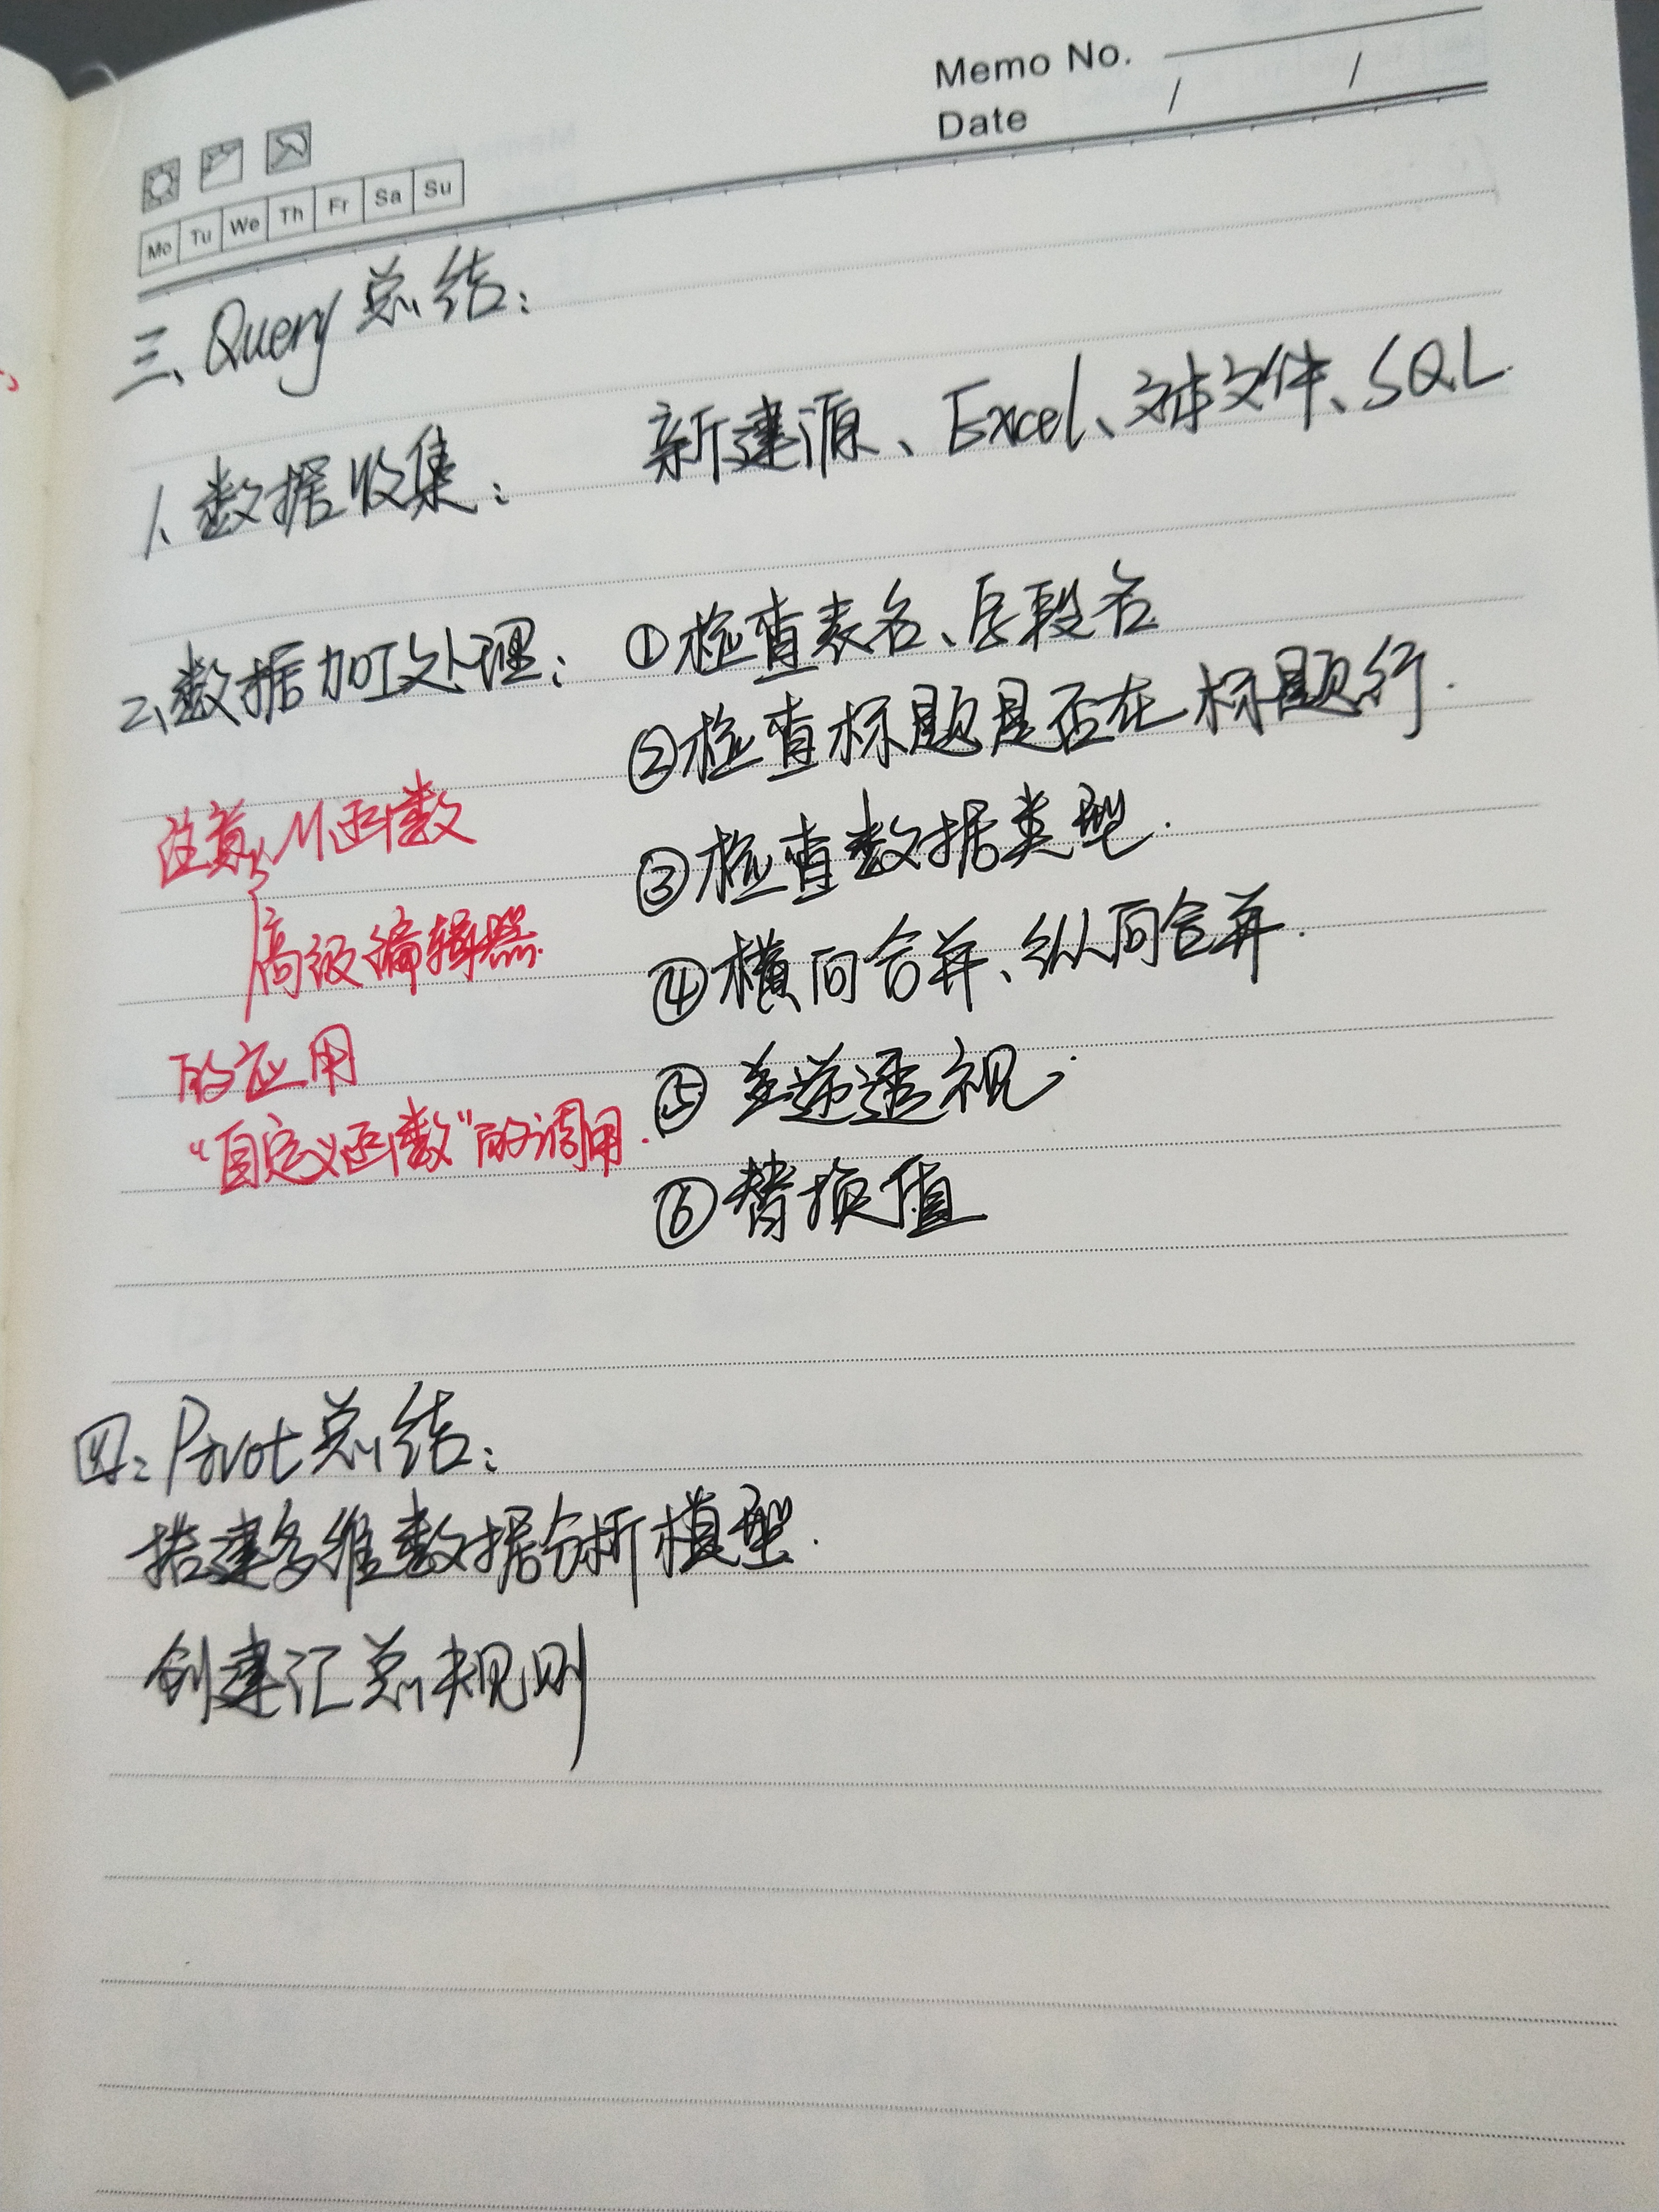 Memo No.
Date / /
Mo Tu We Th Fr Sa Su
三、Query总结：
1、数据收集： 新建源、Excel、文本文件、SQL.
2、数据加工处理： ①检查表名、字段名
②检查标题是否在标题行.
③检查数据类型.
④横向合并、纵向合并.
⑤逆透视.
⑥替换值
注意、M函数
高级编辑器.
的应用
“自定义函数”的调用.
四：Pivot总结：
搭建多维数据分析模型.
创建汇总规则